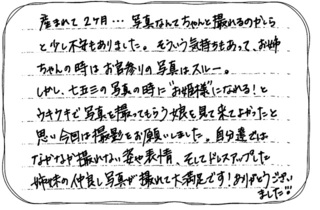 産まれて2ヶ月…写真なんてちゃんと撮れるのかしら
と少し不安もありました。そういう気持ちもあって、お姉
ちゃんの時はお宮参りの写真はスルー。
しかし、七五三の写真の時に"お姫様"になれる!と
ウキウキで写真を撮ってもらう娘を見て来てよかったと
思い今回は撮影をお願いしました。自分達では
なかなか撮れない姿や表情、そしてドレスアップした
姉妹の仲良し写真が撮れて大満足です!ありがとうござい
ました!!